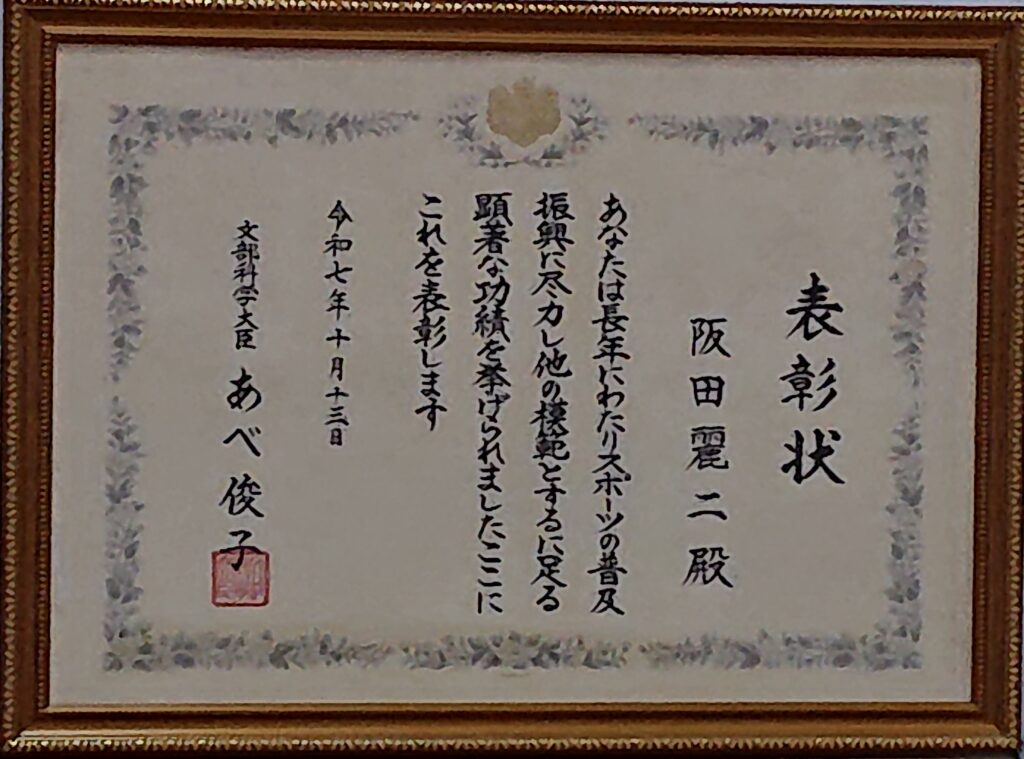 表彰状
阪田麗二殿
あなたは長年にわたりスポーツの普及
振興に尽力し他の模範とするに足る
顕著な功績を挙げられましたここに
これを表彰します
令和七年十月十三日
文部科学大臣 あべ俊子